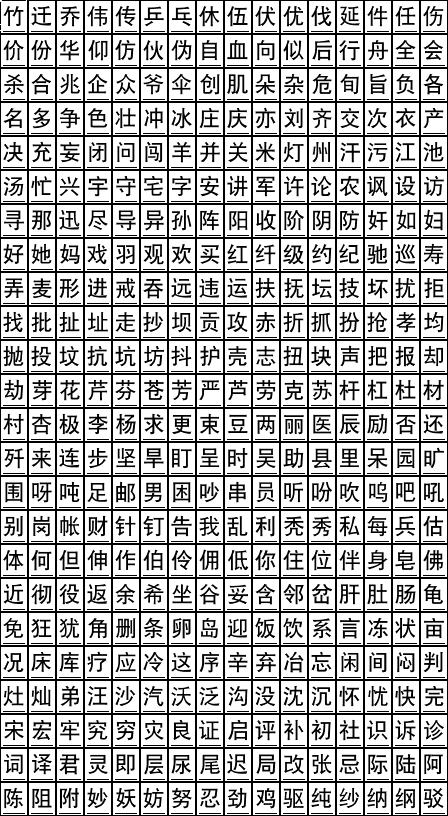 竹迁乔伟传乒乓休伍伏优伐延件任伤
价份华仰仿伙伪自血向似后行舟全会
杀合兆企众爷伞创肌朵杂危旬旨负各
名多争色壮冲冰庄庆亦刘齐交次衣产
决充妄闭问闯羊并关米灯州汗污江池
汤忙兴宇守宅字安讲军许论农讽设访
寻那迅尽导异孙阵阳收阶阴防奸如妇
好她妈戏羽观欢买红纤级约纪驰巡寿
弄麦形进戒吞远违运扶抚坛技坏扰拒
找批扯址走抄坝贡攻赤折抓扮抢孝均
抛投坟抗坑坊抖护壳志扭块声把报却
劫芽花芹芬苍芳严芦劳克苏杆杠杜材
村杏极李杨求更束豆两丽医辰励否还
歼来连步坚旱盯呈时吴助县里呆园旷
围呀吨足邮男困吵串员听吩吹呜吧吼
别岗帐财针钉告我乱利秃秀私每兵估
体何但伸作伯伶佣低你住位伴身皂佛
近彻役返余希坐谷妥含邻岔肝肚肠龟
免狂犹角删条卵岛迎饭饮系言冻状亩
况床库疗应冷这序辛弃冶忘闲间闷判
灶灿弟汪沙汽沃泛沟没沈沉怀忧快完
宋宏牢究穷灾良证启评补初社识诉诊
词译君灵即层尿尾迟局改张忌际陆阿
陈阻附妙妖妨努忍劲鸡驱纯纱纳纲驳